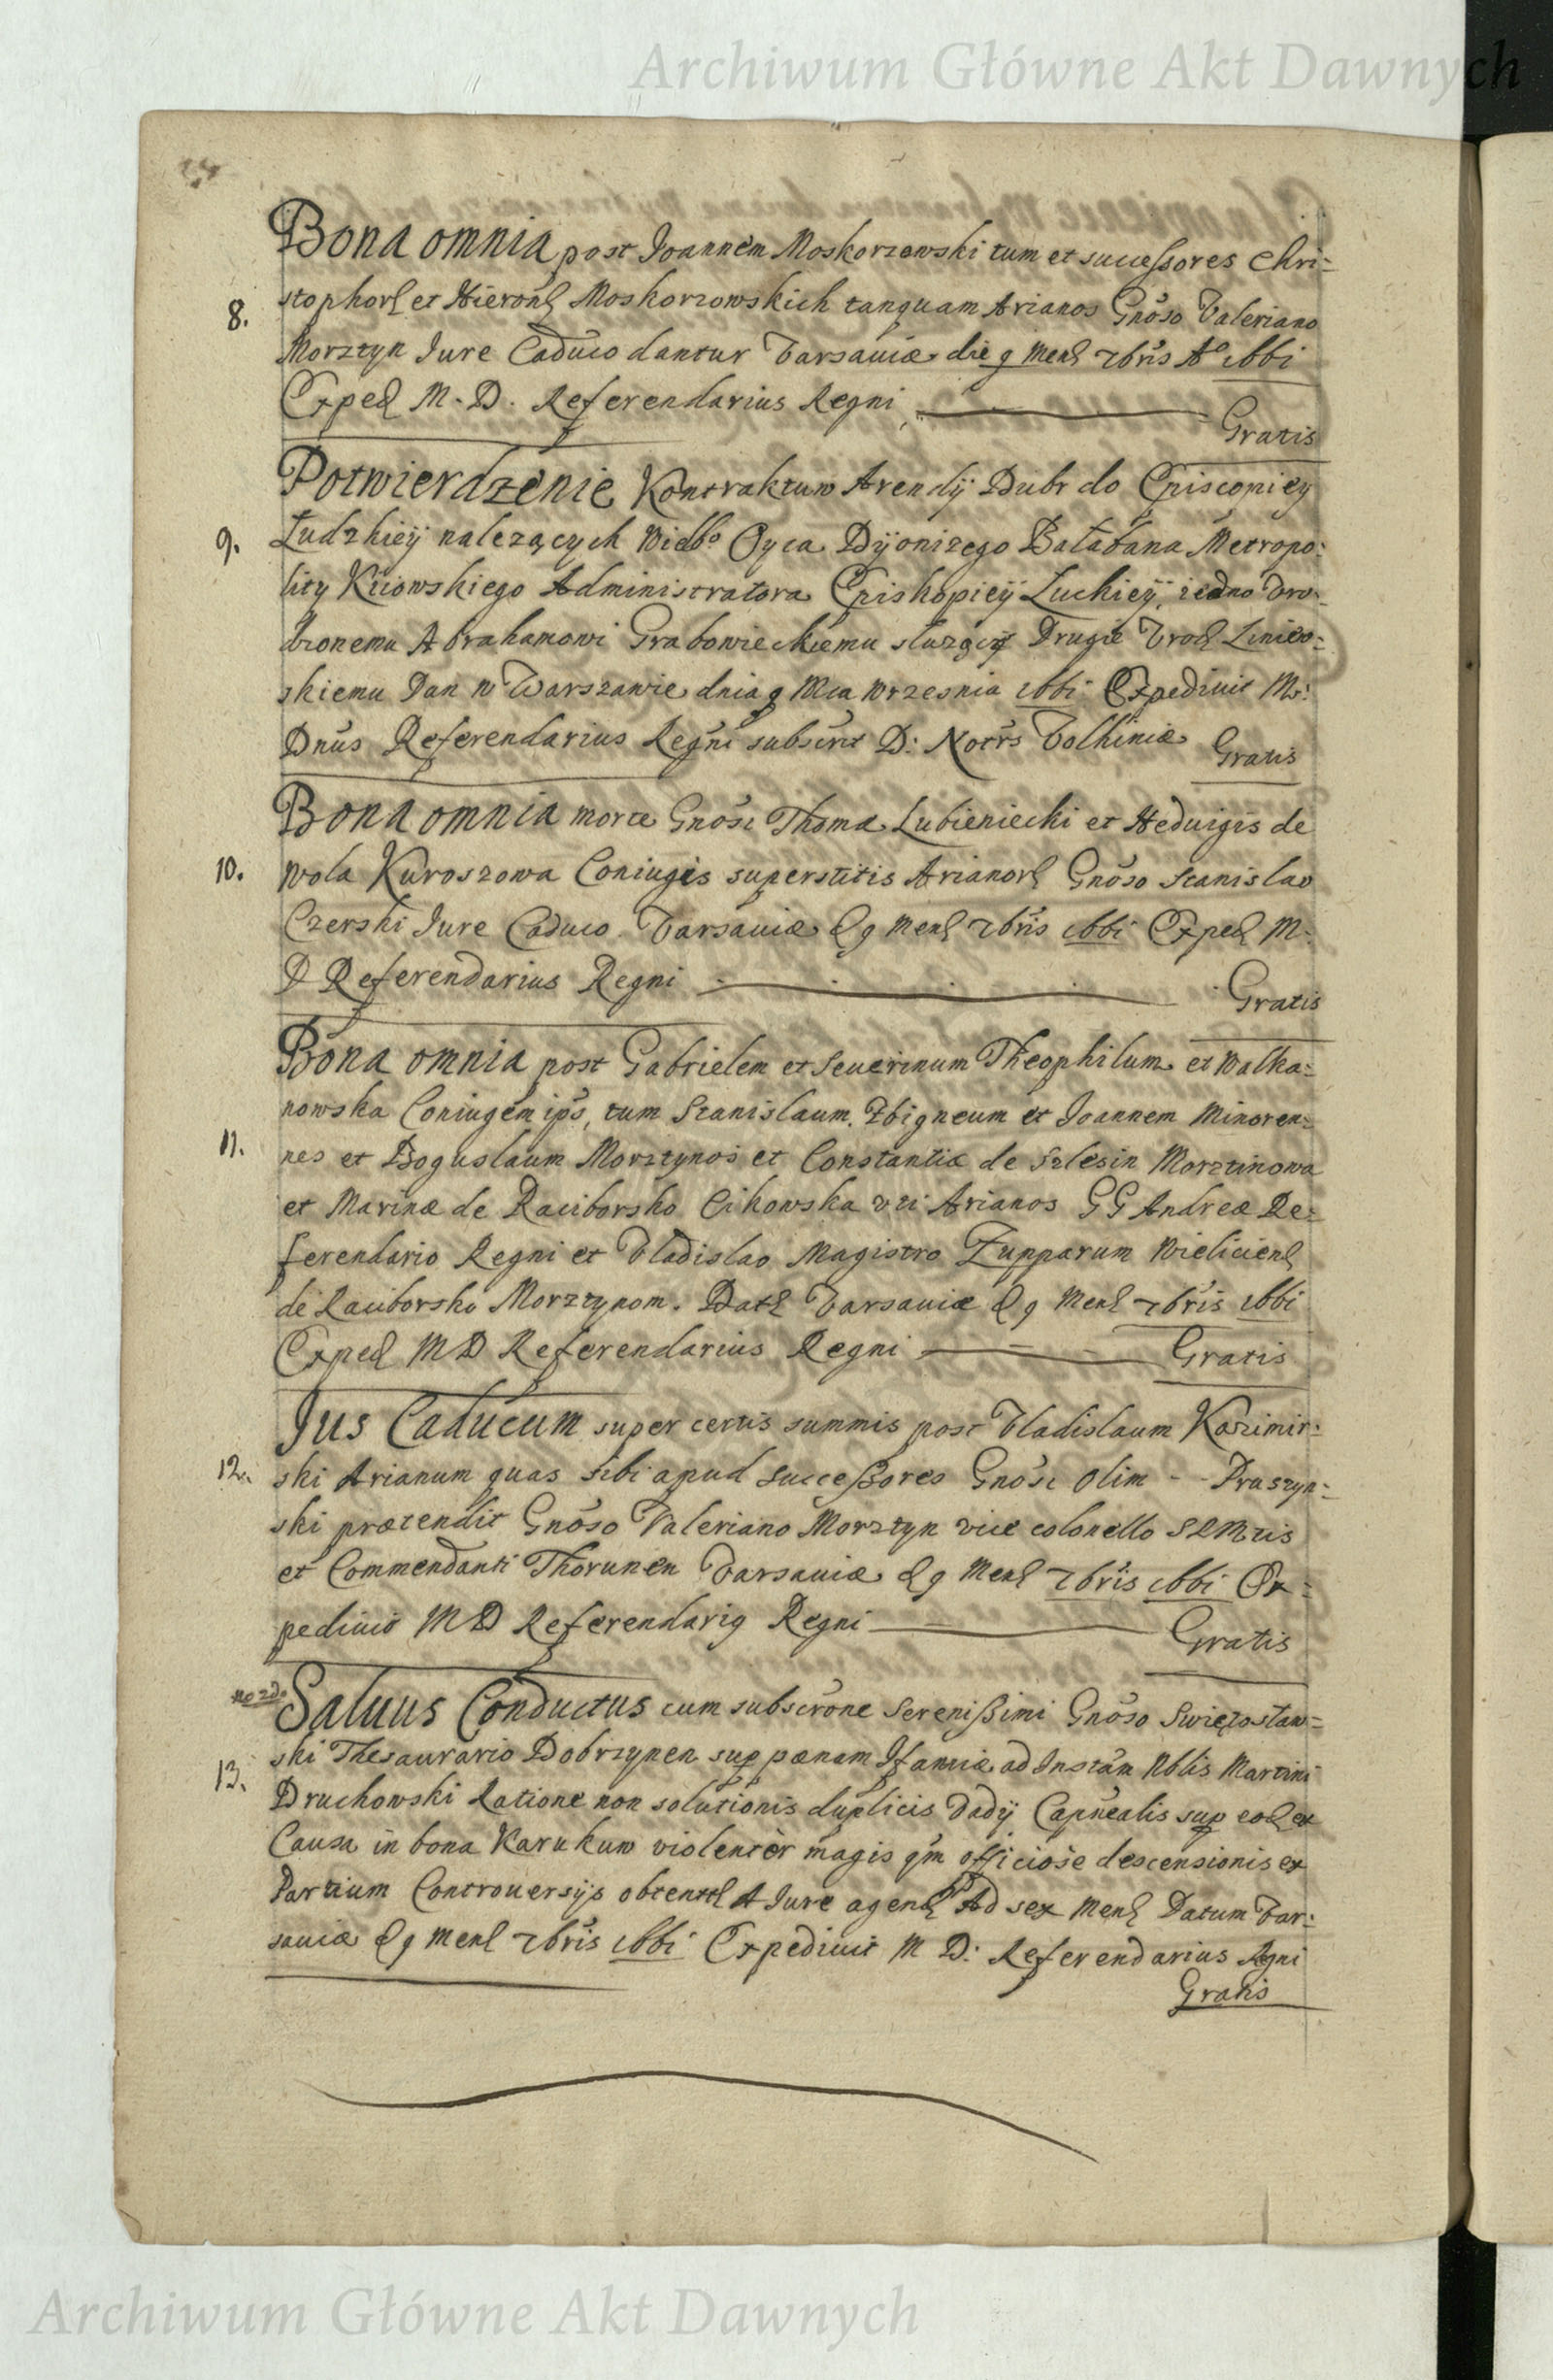 Archiwum Główne Akt Dawnych
Bona omnia post Joannem Moskorzewski tum et successores Chri=
8. stophorȩ et Hieronȩ Moskorzowskich tanquam Arianos Gnoso Valeriano
Morsztyn Jure Caduco dantur Varsaviæ die 9 Menȩ 7bris Aº 1661
Exped M. D. Referendarius Regni
Gratis
Potwierdzenie Kontraktuw Arendy Dubr do Episcopiey
9. Łudzkieÿ nalezących Wielbº Oyca Dÿonizego Bałabana Metropo:
lity Kiiowskiego Administratora Episkopieÿ Luckieÿ, iedno Vro:
dzonemu Abrahamowi Grabowieckiemu służący Drugie Vrodȩ Liniew:
skiemu Dan w Warszawie dnia 9 Mca Wrzesnia 1661 Expedivit Mr:
Dnus Referendarius Regni subscrit D: Notrs Volhiniæ Gratis
Bona omnia morte Gnosi Thomæ Lubieniecki et Heduigis de
10. Wola Kuroszowa Coniugis superstitis Arianorȩ Gnoso Stanislao
Czerski Jure Caduco. Varsaviæ D 9 Menȩ 7bris 1661 Exped M:
D Referendarius Regni
Gratis
Bona omnia post Gabrielem et Seuerinum Theophilum et Walka=
nowska Coniugem ips, tum Stanislaum, Zbigneum et Joannem Minoren=
11. nes et Boguslaum Morsztynos et Constantiæ de Szlesin Morsztinowa
et Marinæ de Raciborsko Cikowska vti Arianos GG Andreæ Re=
ferendario Regni et Vladislao Magistro Zupparum Wielicienȩ
de Raciborsko Morsztynom. Datȩ Varsaviæ D 9 Menȩ 7bris 1661
Exped M D Referendarius Regni Gratis
Jus Caducum super certis summis post Vladislaum Kazimir:
12. ski Arianum quas sibi apud Successores Gnosi olim - - Pruszyn=
ski prætendit Gnoso Valeriano Morsztyn vice colonello SRMtis
et Commendanti Thorunen Varsaviæ D 9 Menȩ 7bris 1661 Ex=
pedivit M D Referendarig Regni Gratis
Saluus Conductus cum subscrone Serenissimi Gnoso Swiętosław=
13. ski Thesaurario Dobrzynen sup pœnam Ifamiæ ad Instam Nblis Martini
Druchowski Ratione non solutionis duplicis Vadÿ Capnealis sup eod ex
Causa in bona Karukuw violenter magis qm officiose descensionis ex
Partium Controuersÿs obtentȩ A Jure agenȩ Ad sex Menȩ Datum Var:
saviæ D 9 Menȩ 7bris 1661 Expedivit M D: Referendarius Rgni
Gratis
Archiwum Główne Akt Dawnych